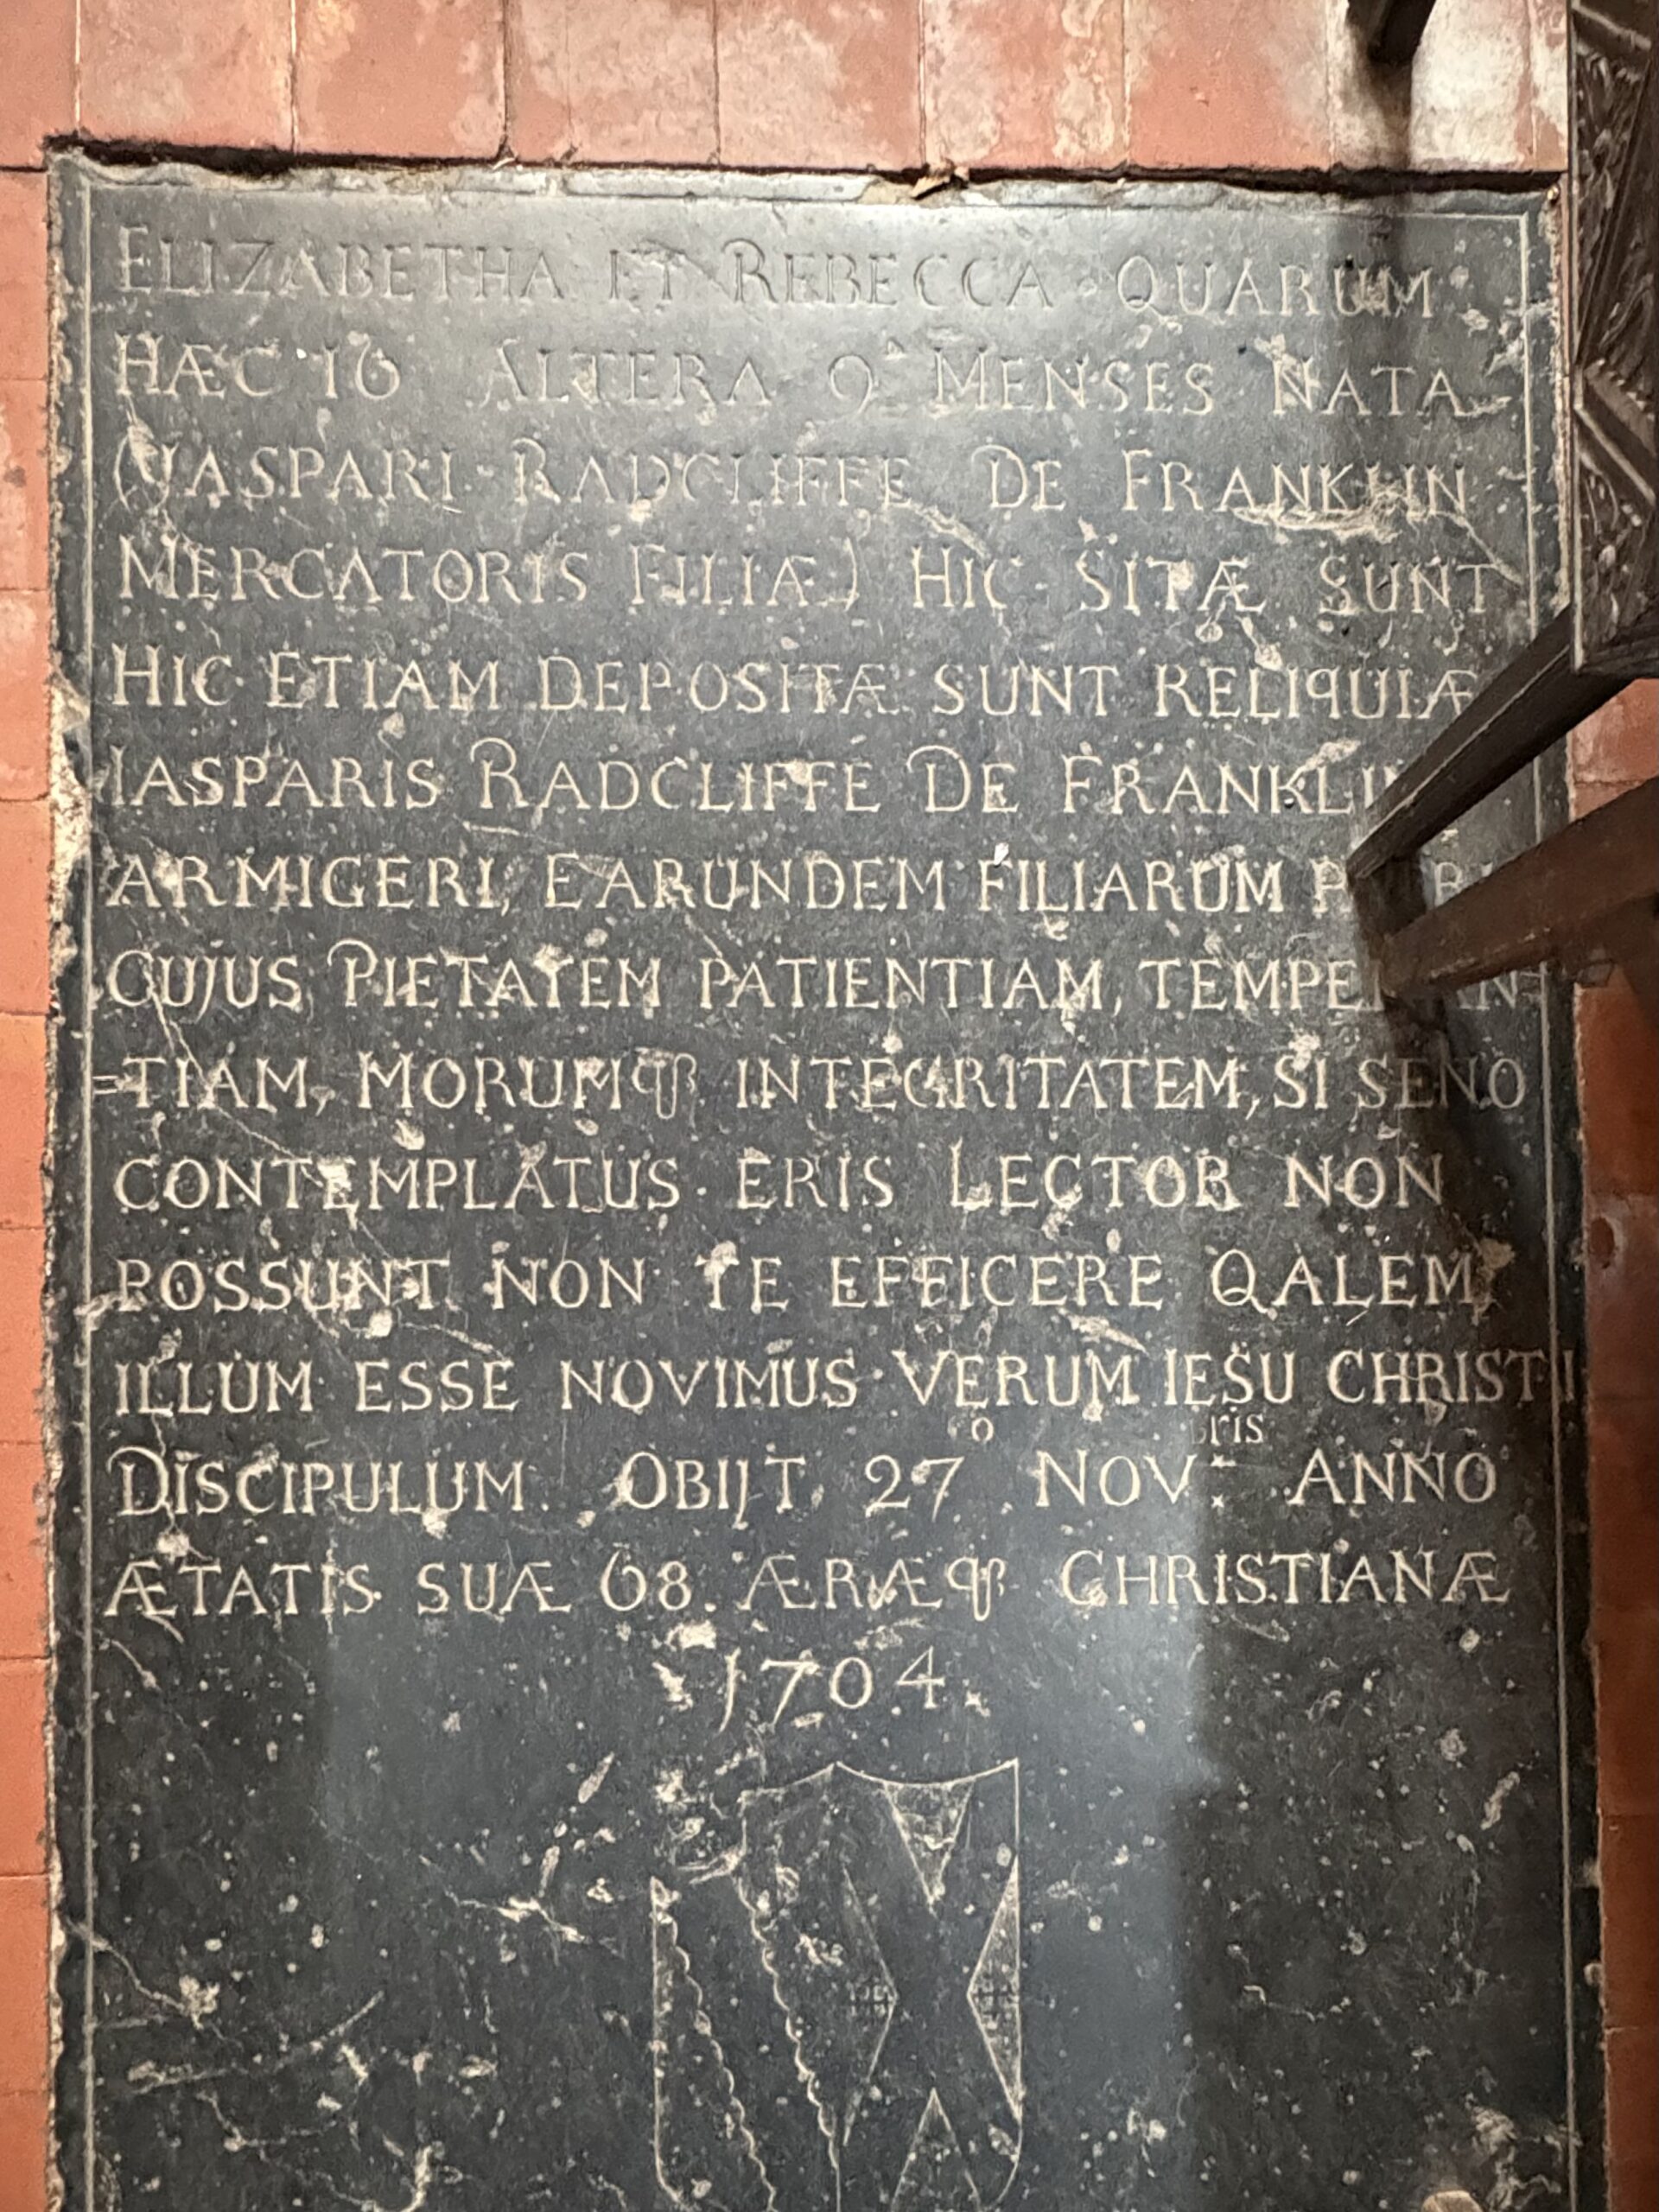 ELIZABETHA ET REBECCA QUARUM
HÆC 16 ALTERA 9 MENSES NATA
(JASPARI RADCLIFFE DE FRANKLIN
MERCATORIS FILIÆ) HIC SITÆ SUNT
HIC ETIAM DEPOSITÆ SUNT RELIQUIÆ
IASPARIS RADCLIFFE DE
ARMIGERI, EARUNDEM FILIARUM
CUJUS PIETATEM PATIENTIAM,
=TIAM, MORUMQꝫ INTEGRITATEM, SI SENO
CONTEMPLATUS ERIS LECTOR NON
POSSUNT NON TE EFFICERE QALEM,
ILLUM ESSE NOVIMUS VERUM IESU CHRISTI
DISCIPULUM. OBIJT 27º NOVbris ANNO
ÆTATIS SUÆ 68. ÆRÆQꝫ CHRISTIANÆ
1704.